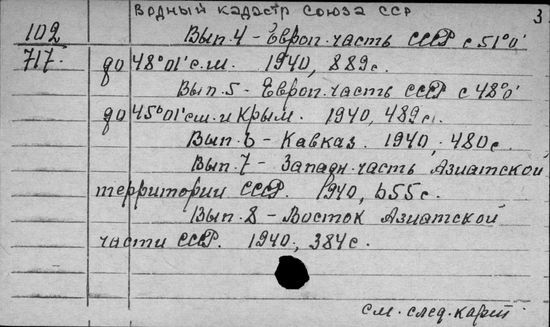 Водный кадастр Союза ССР
3
102
717.
Вып. 4 - Европ. часть СССР с 51°0'
до 48°01' с.ш. 1940, 889 с.
Вып. 5 - Европ. часть СССР с 48°0'
до 45°01' с.ш. и Крым. 1940, 489 с.
Вып. 6 - Кавказ. 1940, 480 с.
Вып. 7 - Западн. часть Азиатской
территории СССР. 1940, 655 с.
Вып. 8 - Восток Азиатской
части СССР. 1940, 384 с.
см. след. карт